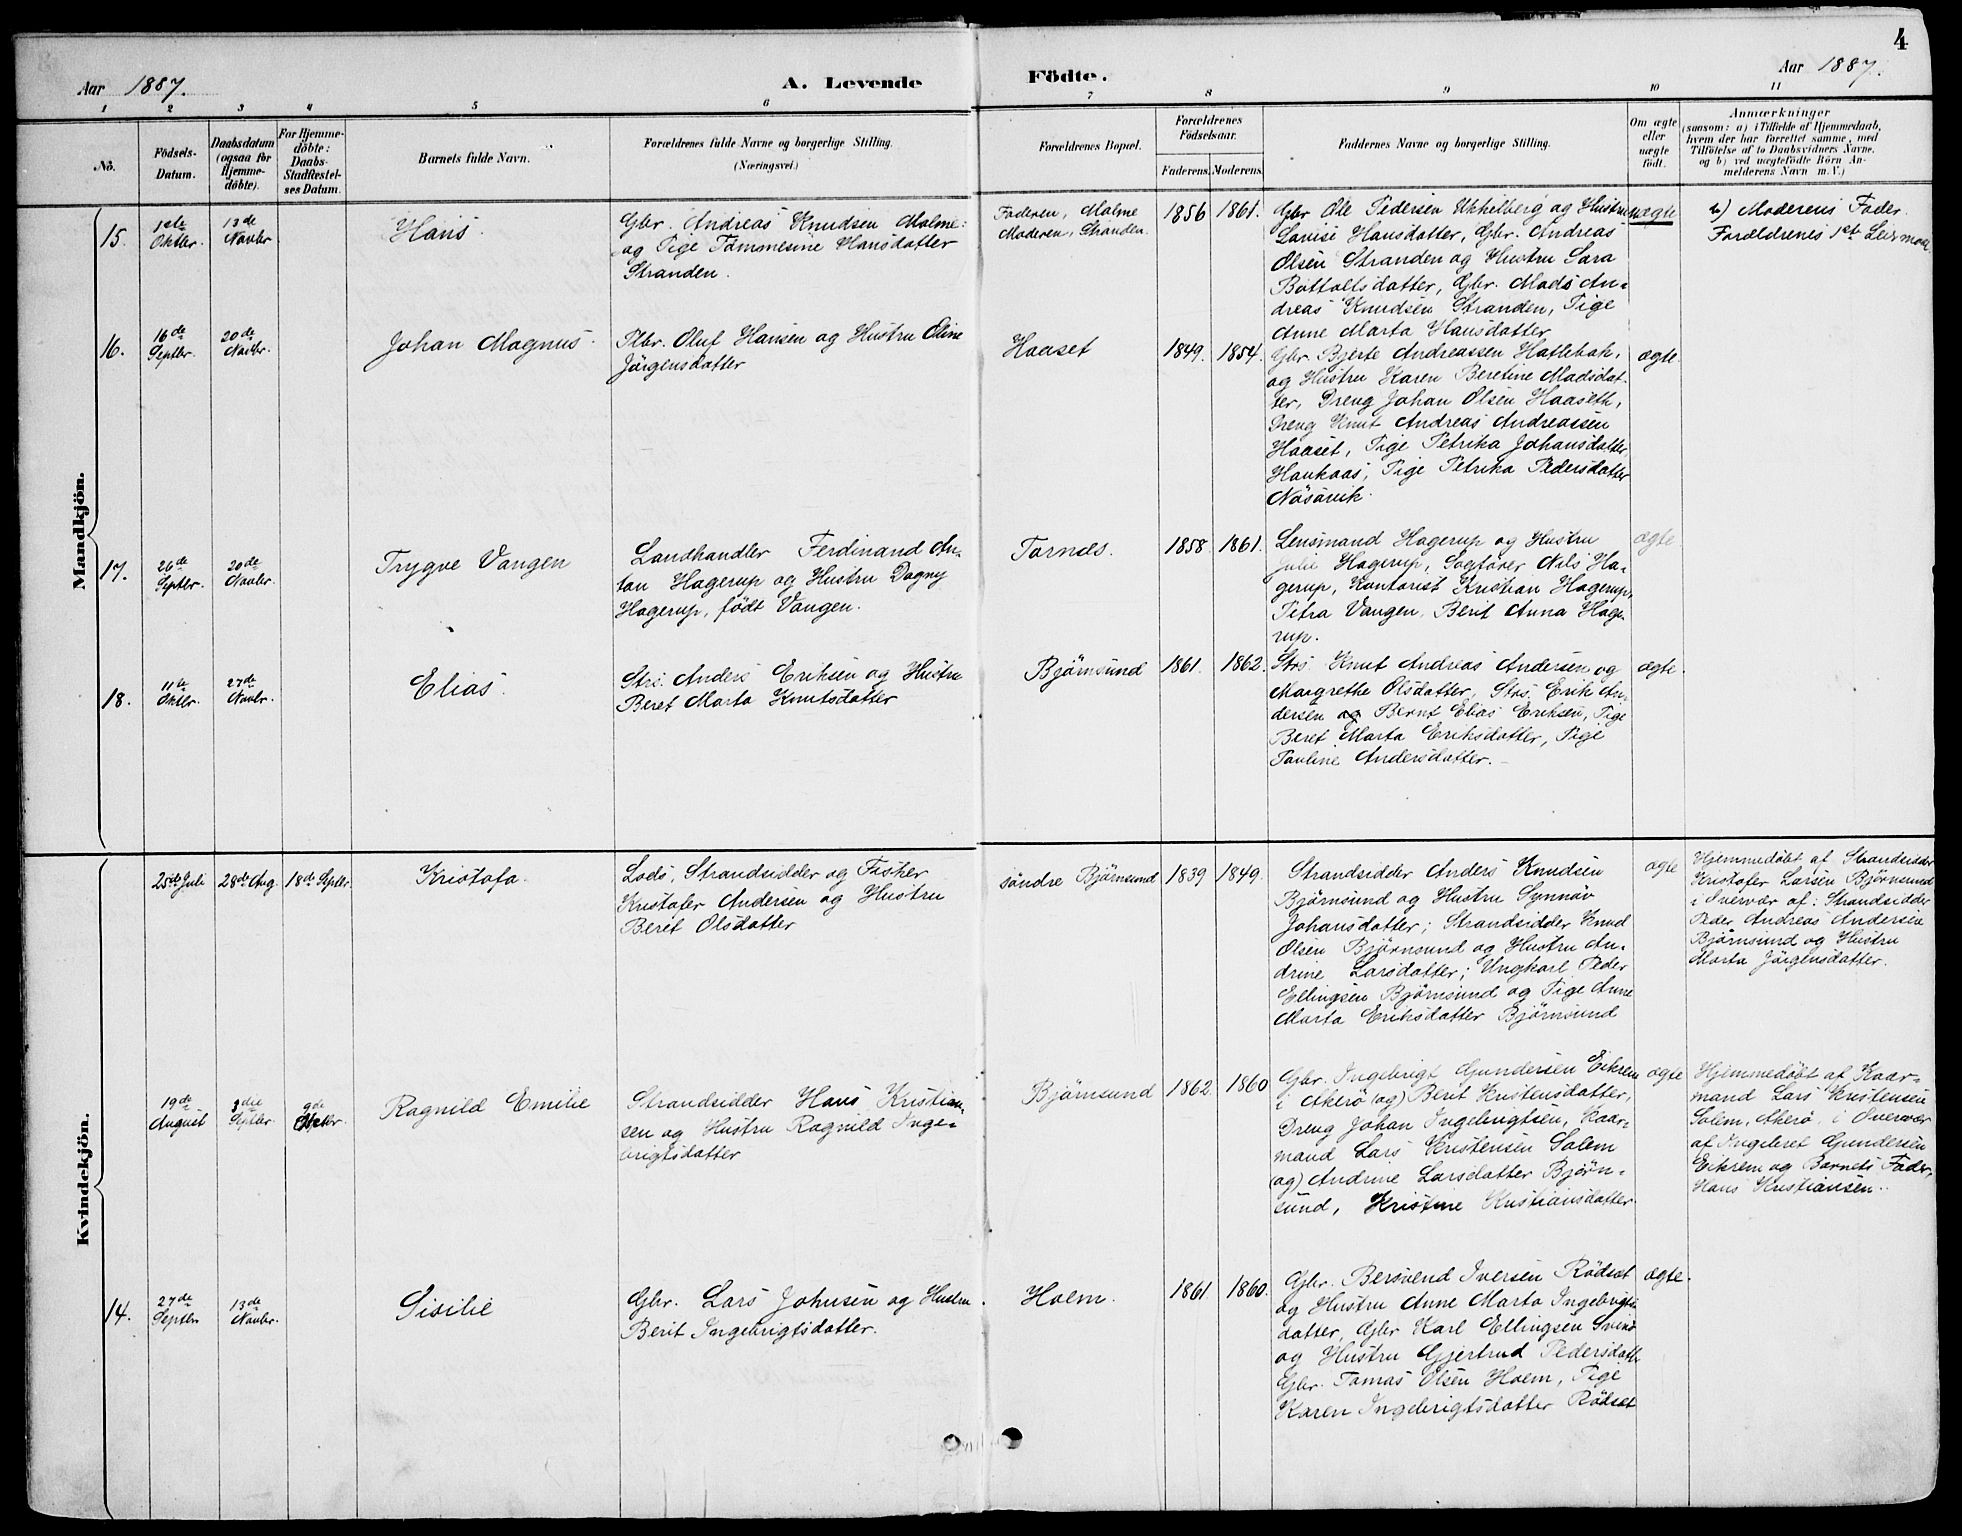 4
Aar 1887.
A. Levende Födte.
Aar 1887.
1 2 3 4 5 6 7 8 9 10 11
No.
Födsels-
Datum.
Daabsdatum
(ogsaa for
Hjemme-
döbte).
For Hjemme-
döbte:
Daabs-
Stadfæstel-
ses Datum.
Barnets fulde Navn.
Forældrenes fulde Navne og borgerlige Stilling.
(Næringsvei.)
Forældrenes Bopæl.
Forældrenes
Födselsaar.
Faderens.
Moderens.
Faddernes Navne og borgerlige Stilling.
Om ægte
eller
uægte
födt.
Anmærkninger
(saasom: a) i Tilfælde af Hjemmedaab,
hvem der har forrettet samme, med
Tilföielse af to Daabsvidners Navne,
og b) ved uægtefödte Börn An-
melderens Navn m. V.)
Mandkjön.
15.
1ste
Oktbr.
13de
Novbr.
Hans.
Gbr. Andreas Knudsen Malme
og Pige Tammesine Hansdatter
Stranden.
Faderen, Malme
Moderen, Stranden.
1856
1861.
Gbr Ole Pedersen Ukkelberg og Hustru
Lovise Hansdatter, Gbr. Andreas
Olsen Stranden og Hustru Sara
Bottolfsdatter, Gbr. Mads An-
dreas Knudsen Stranden, Pige
Anne Marta Hansdatter
uægte
b) Moderens Fader.
Forældrenes 1ste Leiermaal
16.
16de
Septbr.
20de
Novbr.
Johan Magnus.
Pbr. Oluf Hansen og Hustru Oline
Jörgensdatter
Haaset
1849.
1854.
Gbr. Bjerte Andreassen Hatlebak,
og Hustru Karen Beretine Madsdat-
ter, Dreng Johan Olsen Haaseth,
Dreng Knut Andreas Andreassen
Haaset, Pige Petrika Johansdatter
Haukaas, Pige Petrika Pedersdatter
Näsvik.
ægte.
17.
26de
Septbr.
20de
Novbr.
Trygve Vangen
Landhandler Ferdinand An-
ton Hagerup og Hustru Dagny
Hagerup, født Vangen.
Tornes.
1858
1861.
Lensmand Hagerup og Hustru
Julie Hagerup, Sagfører Nils Ha-
gerup, Kontorist Kristian Hagerup,
Petra Vangen, Berit Anna Hage-
rup.
ægte
18.
11te
Oktbr.
27de
Novbr.
Elias.
Strs. Anders Eriksen og Hustru
Beret Marta Knutsdatter
Bjørnsund
1861.
1862.
Strs. Knut Andreas Andersen og
Margrethe Olsdatter, Strs. Erik An-
dersen og Bernt Elias Eriksen, Pige
Beret Marta Eriksdatter, Pige
Pauline Andersdatter.
ægte.
Kvindekjön.
25de Juli
28de Aug.
18de Septbr.
Kristofa.
Lods, Strandsidder og Fisker
Kristofer Andersen og Hustru
Berit Olsdatter
söndre Bjørnsund
1839
1849.
Strandsidder Anders Knudsen
Björnsund og Hustru Synnöv
Johansdatter; Strandsidder Knud
Olsen Björnsund og Hustru An-
drine Larsdatter; Ungkarl Peder
Ellingsen Björnsund og Pige Anne
Marta Eriksdatter Björnsund
ægte
Hjemmedöbt af Strandsidder
Kristofer Larsen Bjørnsund
i Overvær af: Strandsidder
Peder Andreas Andersen
Björnsund og Hustru
Marta Jörgensdatter.
19de
August
3die
Septbr
9de
Oktbr.
Ragnild Emilie
Strandsidder Hans Kristian-
sen og Hustru Ragnild Inge-
brigtsdatter
Björnsund
1862
1860
Gbr. Ingebrigt Gundersen Eikrem
i Akerø (og) Berit Kristensdatter,
Dreng Johan Ingebrigtsen, Kaar-
mand Lars Kristensen Solem
(og) Andrine Larsdatter Björn-
sund, Kristine Kristiansdatter
ægte
Hjemmedöbt af Kaar-
mand Lars Kristensen
Solem, Akerø, i Overvær
af Ingebret Gundersen
Eikrem og Barnets Fader,
Hans Kristiansen.
14.
27de
Septbr
13de
Novbr.
Sisilie
Gbr. Lars Johnsen og Hustru
Berit Ingebrigtsdatter.
Holm.
1861.
1860.
Gbr. Bersvend Iversen Rødset
og Hustru Anne Marta Ingebrigts-
datter, Gbr Karl Ellingsen
og Hustru Gjertrud Pedersdatter
Gbr. Tomas Olsen Holm, Pige
Karen Ingebrigtsdatter Rødset
ægte.